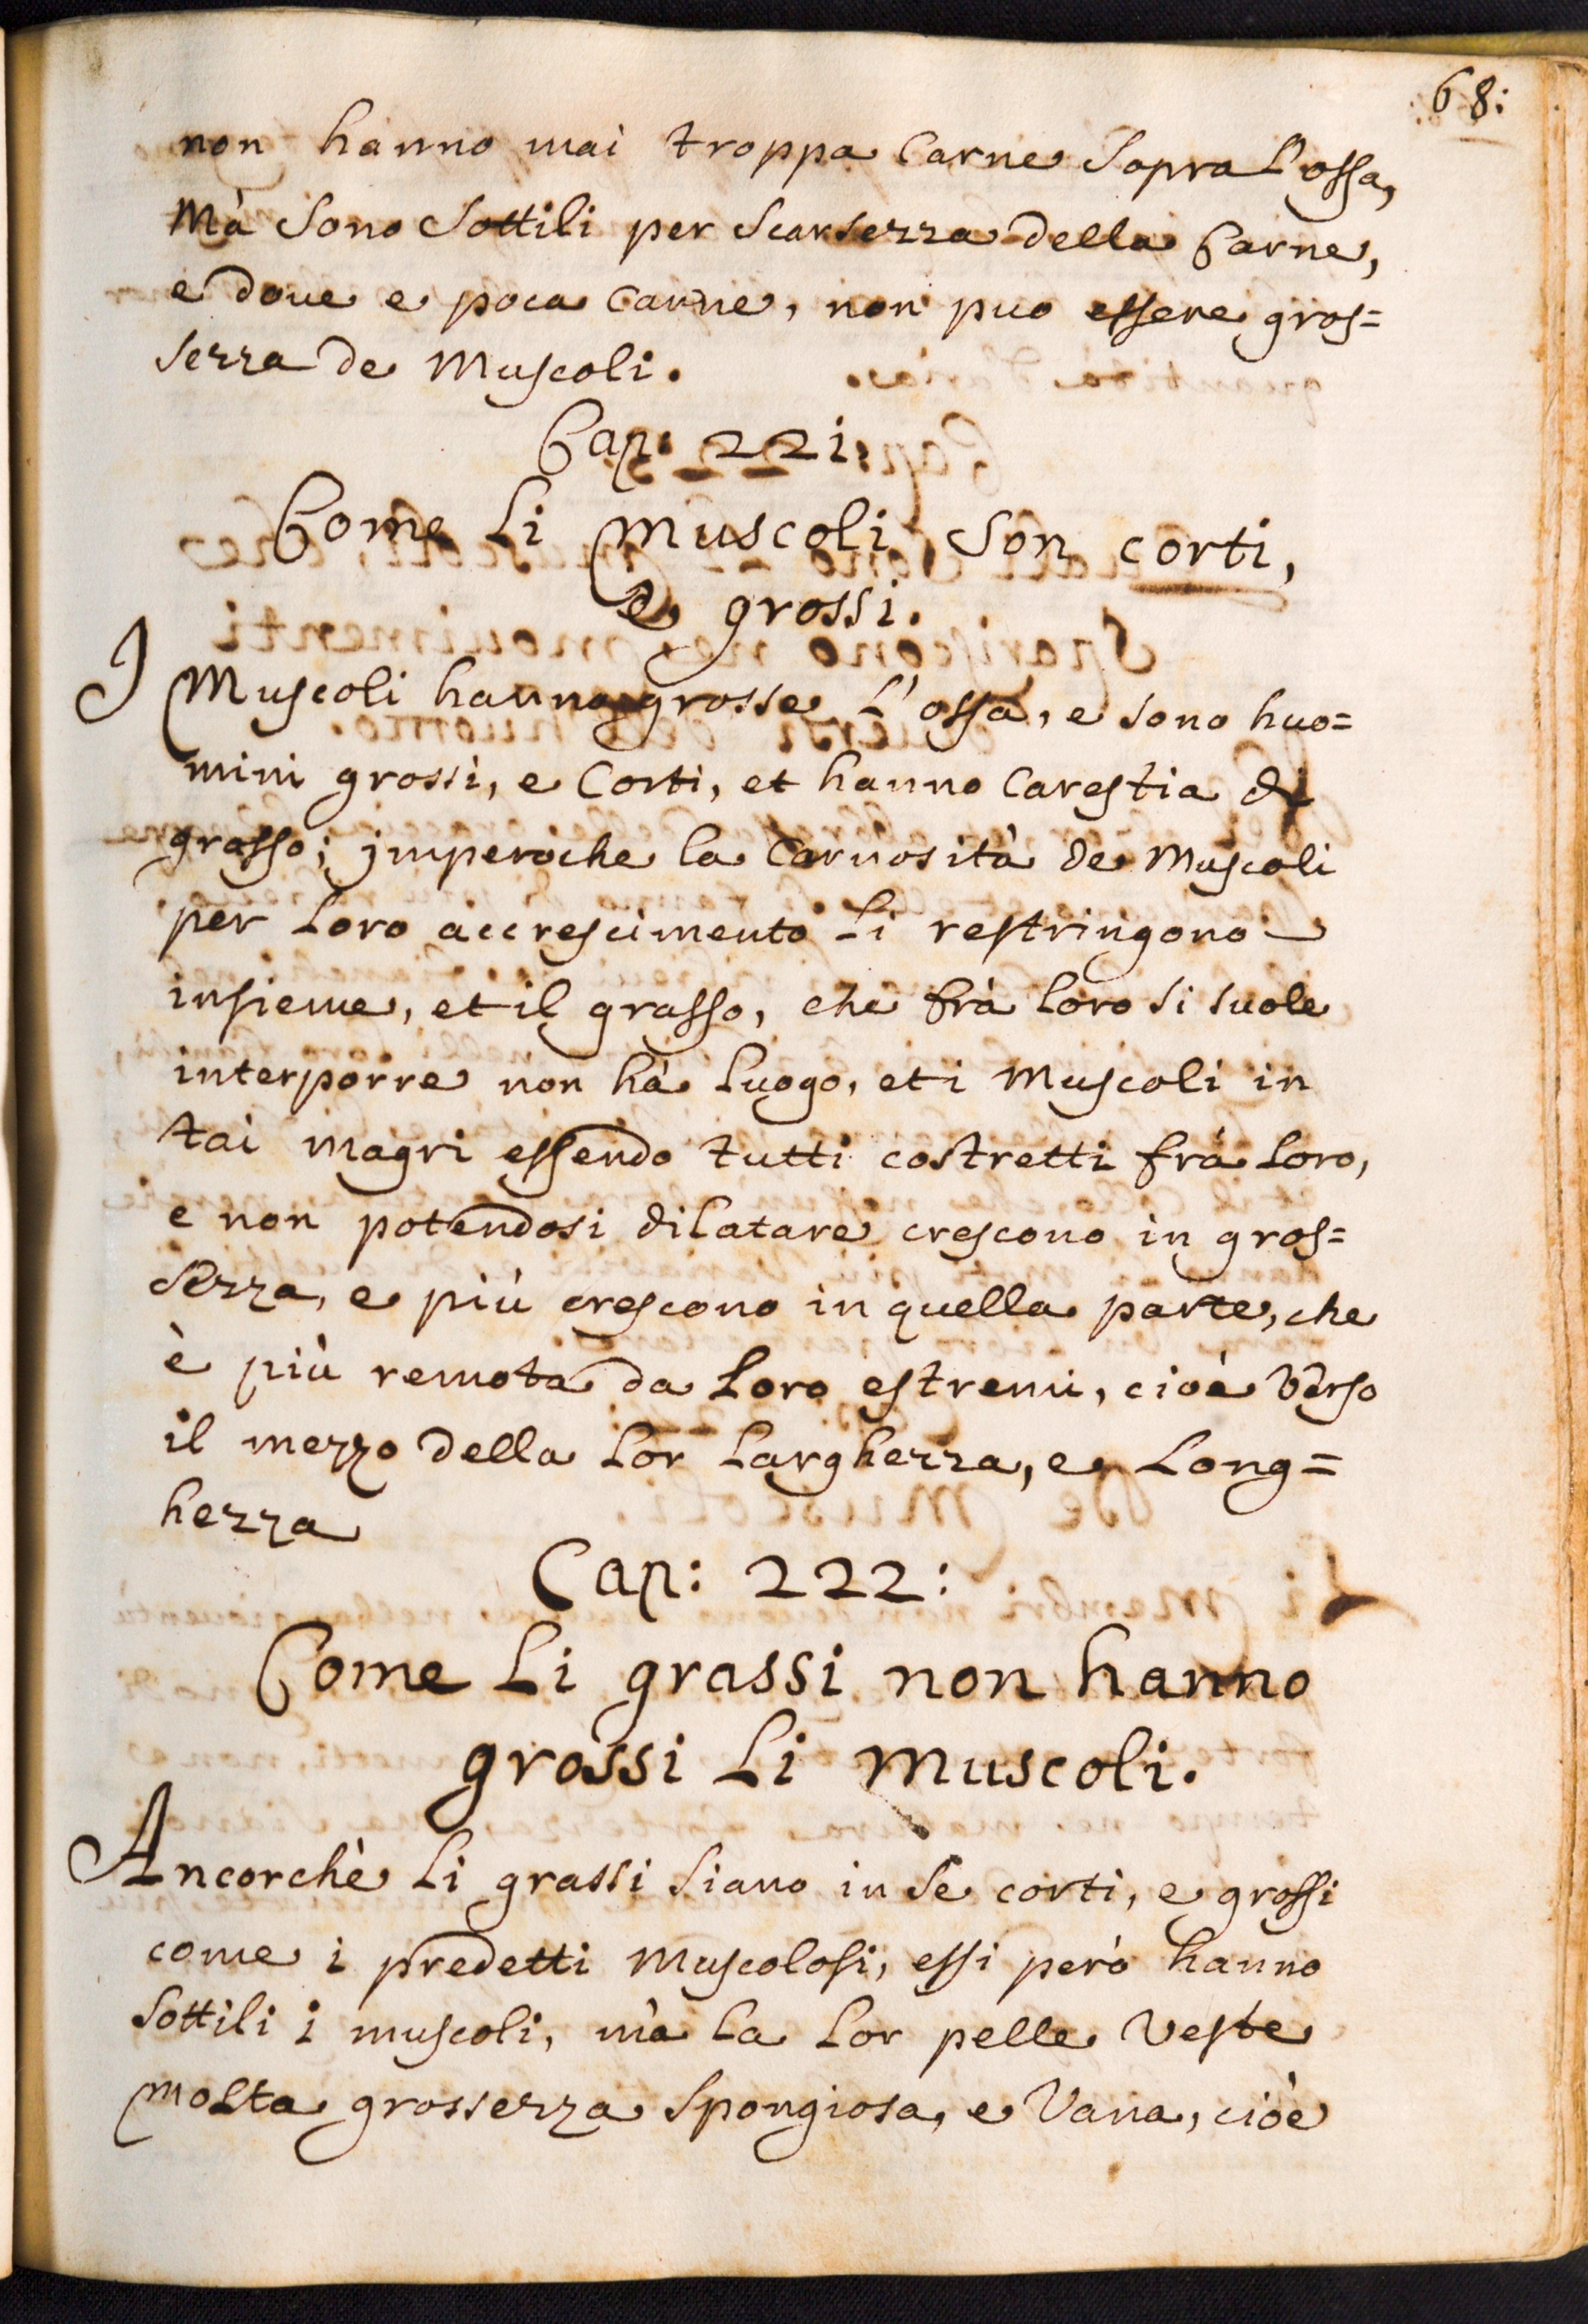 68:
non hanno mai troppa Carne Sopra L'ossa,
Mà Sono Sottili per Scarsezza della Carne,
e doue e poca Carne, non puo essere gros=
sezza de Muscoli.
Cap: 221:
Come Li Muscoli Son corti,
e grossi.
I Muscoli hanno grosse L'ossa, e sono huo=
mini grossi, e Corti, et hanno Carestia di
grasso; jmperoche la Carnosità de Muscoli
per Loro accrescimento Li restringono
insieme, et il grasso, che frà loro si suole
interporre non hà Luogo, et i Muscoli in
tai magri essendo tutti costretti frà Loro,
e non potendosi dilatare crescono in gros=
sezza, e più crescono in quella parte, che
è più remota da Loro estremi, cioè Verso
il mezzo della Lor Larghezza, e Long=
hezza
Cap: 222:
Come Li grassi non hanno
grossi Li Muscoli.
Ancorchè Li grassi Siano in Se corti, e grossi
come i predetti Muscolosi, essi però hanno
Sottili i muscoli, mà La Lor pelle Veste
Molta grossezza Spongiosa, e Vana, cioè